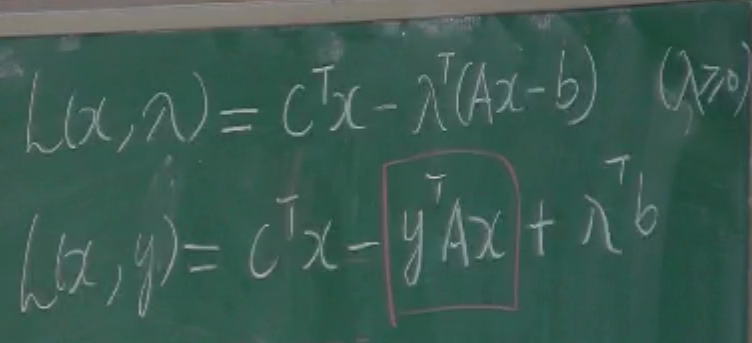 L(x, λ) = Cᵀx - λᵀ(Ax - b) (λ ≥ 0)
L(x, y) = Cᵀx - yᵀAx + λᵀb